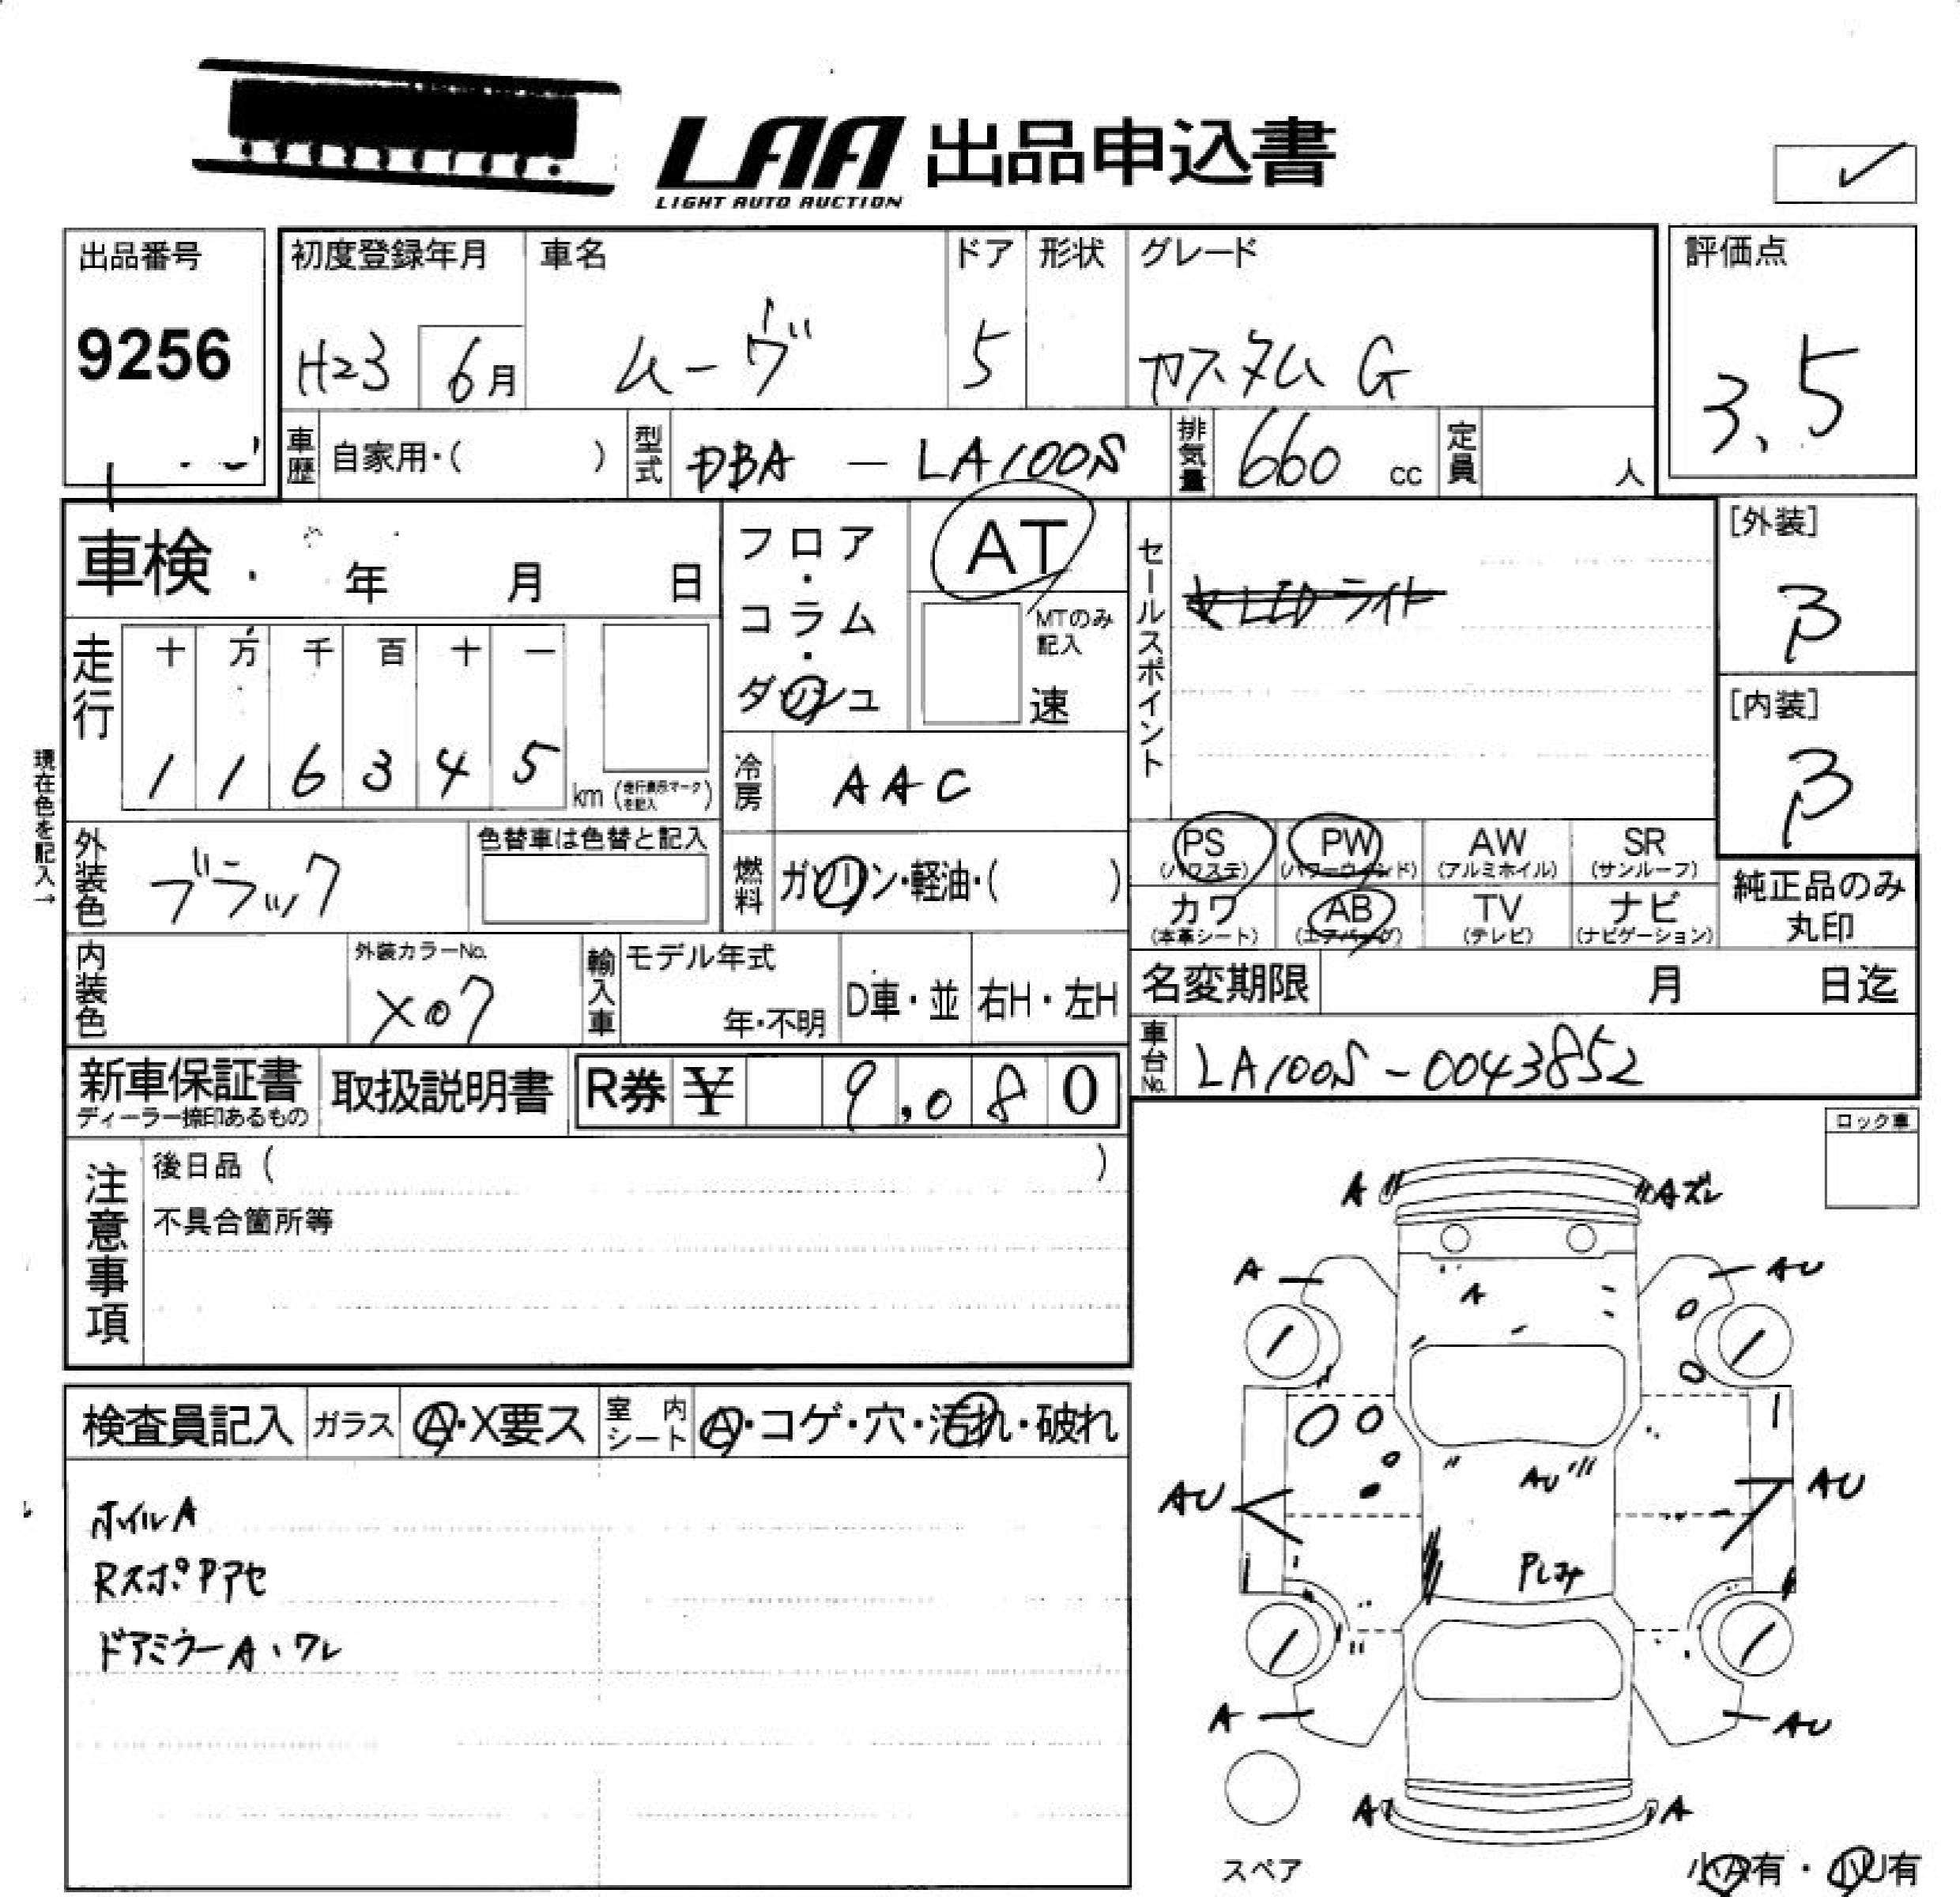 LAA 出品申込書
LIGHT AUTO AUCTION
出品番号
9256
初度登録年月
H23 6月
車名
ムーヴ
ドア
5
形状
グレード
カスタム G
評価点
3.5
車歴 自家用・( )
型式 DBA - LA100S
排気量 660 cc
定員 人
車検 年 月 日
フロア・コラム・ダッシュ
AT
MTのみ記入
速
セールスポイント
LEDライト
[外装]
B
[内装]
B
走行
十 万 千 百 十 一
1 1 6 3 4 5 km (走行表示マークを記入)
現在色を記入→
冷房 AAC
外装色 ブラック
色替車は色替と記入
燃料 ガソリン・軽油・( )
PS (パワステ)
PW (パワーウインド)
AW (アルミホイル)
SR (サンルーフ)
カワ (本革シート)
AB (エアバッグ)
TV (テレビ)
ナビ (ナビゲーション)
純正品のみ丸印
内装色
外装カラーNo.
X07
輸入車
モデル年式
年・不明
D車・並
右H・左H
名変期限 月 日迄
車台No. LA100S-0043852
新車保証書
ディーラー捺印あるもの
取扱説明書
R券 ¥ 9,080
ロック車
注意事項
後日品 ( )
不具合箇所等
検査員記入
ガラス A・X要ス
室内シート A・コゲ・穴・汚れ・破れ
ホイルA
RスポPアセ
ドアミラーA・ワレ
A
Aズレ
A
AU
A
AU
AU
AU
A
AU
A
A
スペア
小A有・小U有